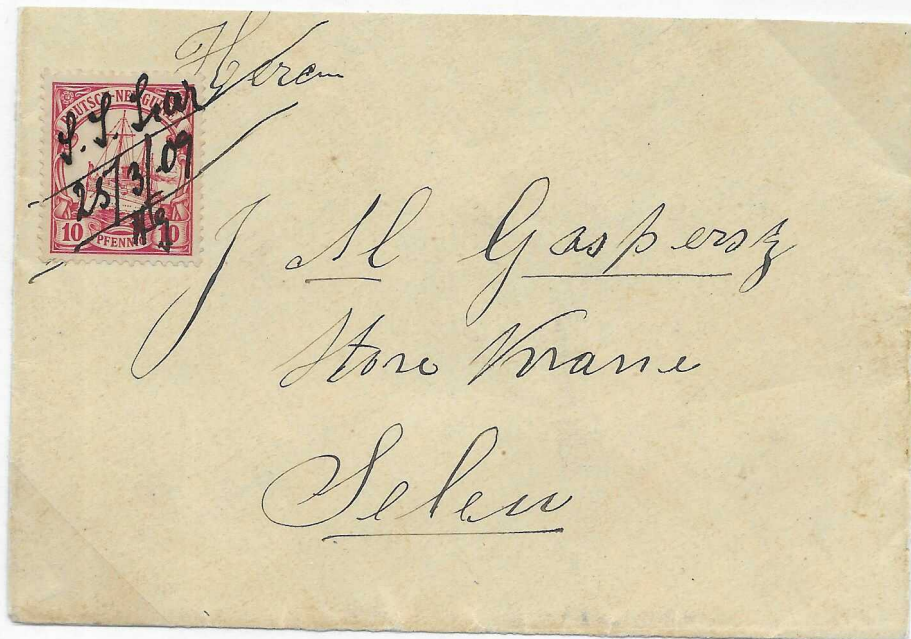 Herrn
DEUTSCH-NEUGUINEA
S. S. Siar
25/3/09
10 PFENNIG 10
J Al Gaspersz
Store Kn
Seleu